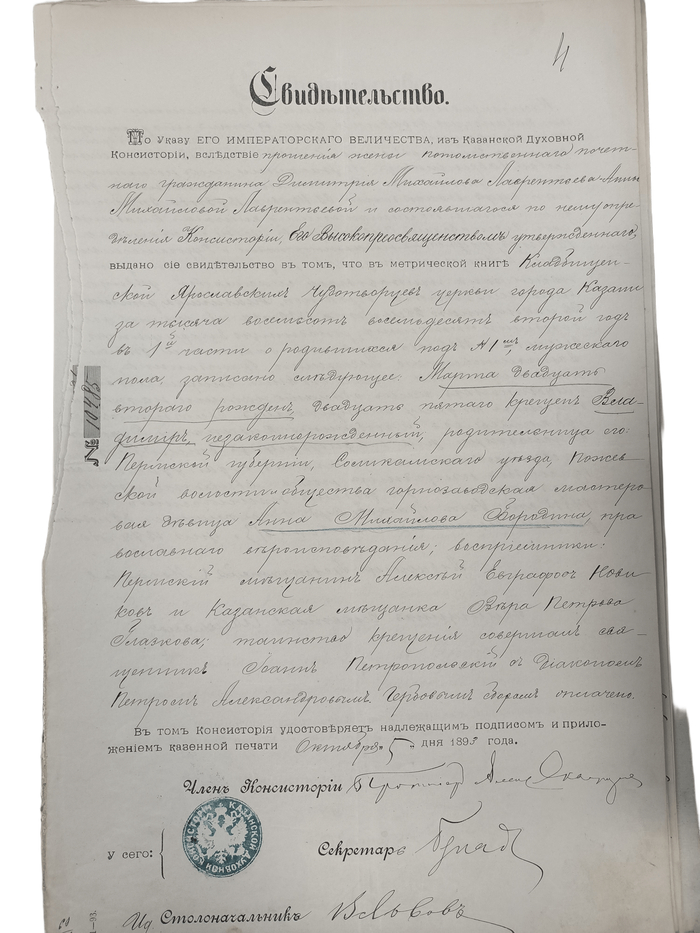 4
Свидѣтельство.
По Указу ЕГО ИМПЕРАТОРСКАГО ВЕЛИЧЕСТВА, изъ Казанской Духовной
Консисторіи, вслѣдствіе прошенія жены потомственнаго почет-
наго гражданина Димитрія Михайлова Лаврентьева Анны
Михайловой Лаврентьевой и состоявшагося по нему опре-
дѣленія Консисторіи, Его Высокопреосвященствомъ утвержденнаго,
выдано сіе свидѣтельство въ томъ, что въ метрической книгѣ Кладбищен-
ской Ярославскихъ Чудотворцевъ церкви города Казани
за тысяча восемьсотъ восемьдесятъ второй годъ
въ 1й части о родившихся подъ № 1мъ, мужескаго
пола, записано слѣдующее: Марта двадцать
втораго рожденъ, двадцать пятаго крещенъ Вла-
димиръ, незаконнорожденный, родительница его:
Пермской губерніи, Соликамскаго уѣзда, Пожев-
ской волости и общества горнозаводская мастеро-
вая дѣвица Анна Михайлова Бородина, пра-
вославнаго вѣроисповѣданія; воспріемники:
Пермскій мѣщанинъ Алексѣй Евграфовъ Нови-
ковъ и Казанская мѣщанка Вѣра Петрова
Глазкова; таинство крещенія совершалъ свя-
щенникъ Іоаннъ Петропольскій съ діакономъ
Петромъ Александровымъ. Гербовымъ сборомъ оплачено.
В томъ Консисторія удостовѣряетъ надлежащимъ подписомъ и прило-
женіемъ казенной печати Октября 5 дня 1893 года.
Членъ Консисторіи
У сего:
КАЗАНСКОЙ ДУХОВНОЙ КОНСИСТОРІИ
Секретарь
Ид. Столоначальникъ В. Львовъ
№ 10485
1—93.